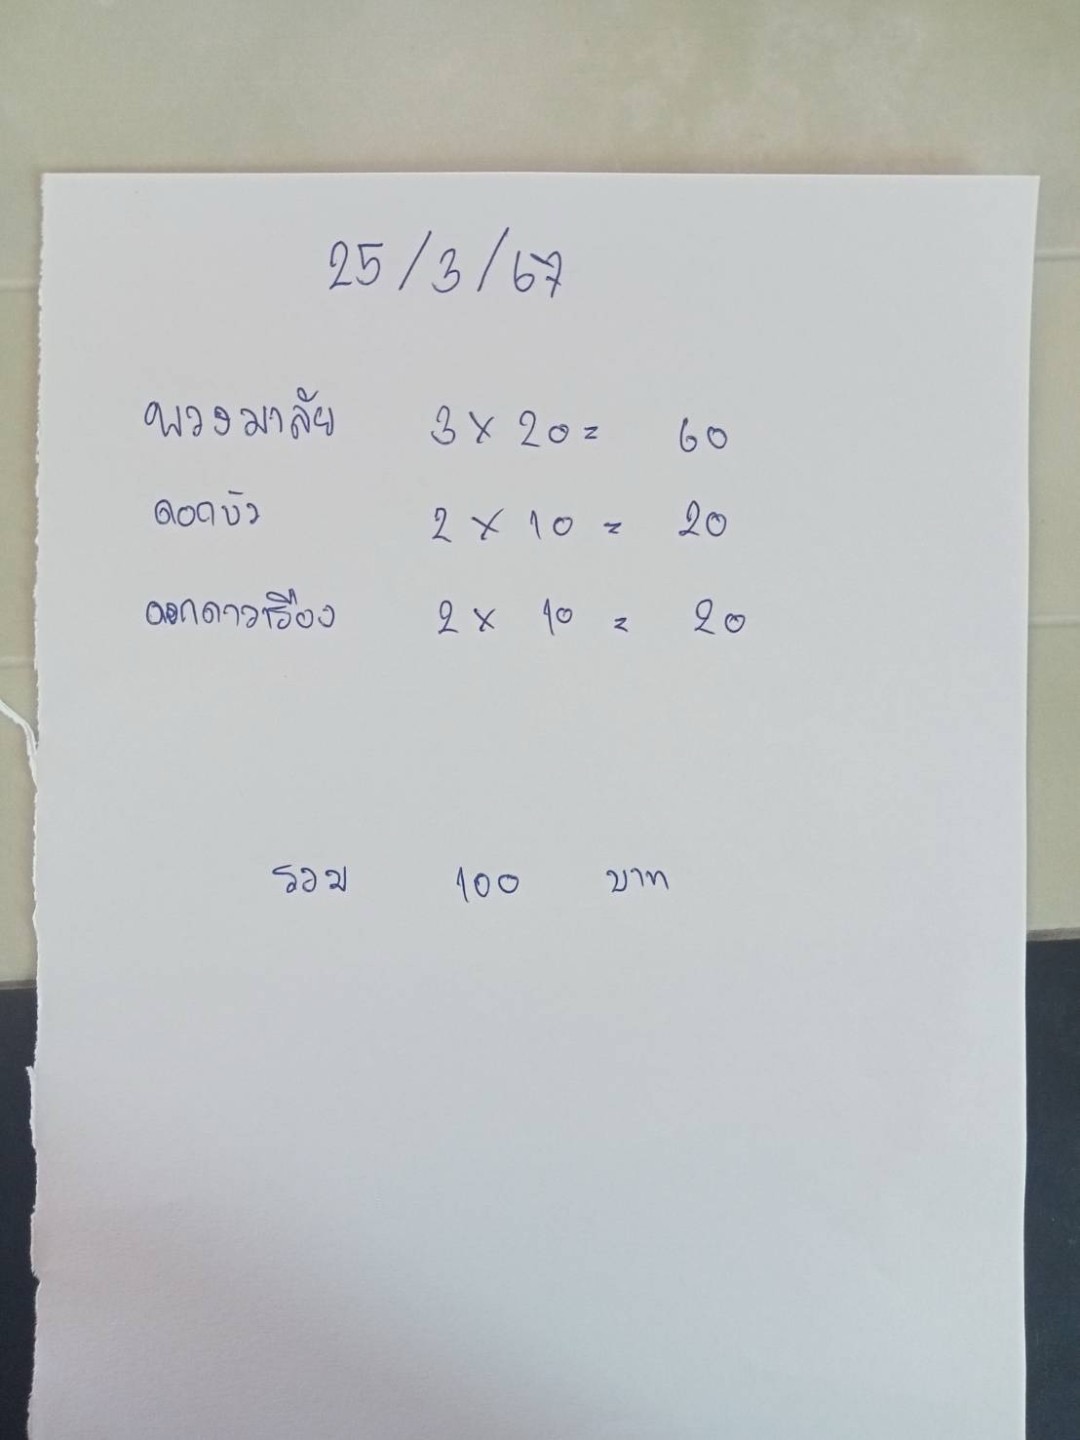 25/3/67
พวงมาลัย 3 x 20 = 60
ดอกบัว 2 x 10 = 20
ดอกดาวเรือง 2 x 10 = 20
รวม 100 บาท